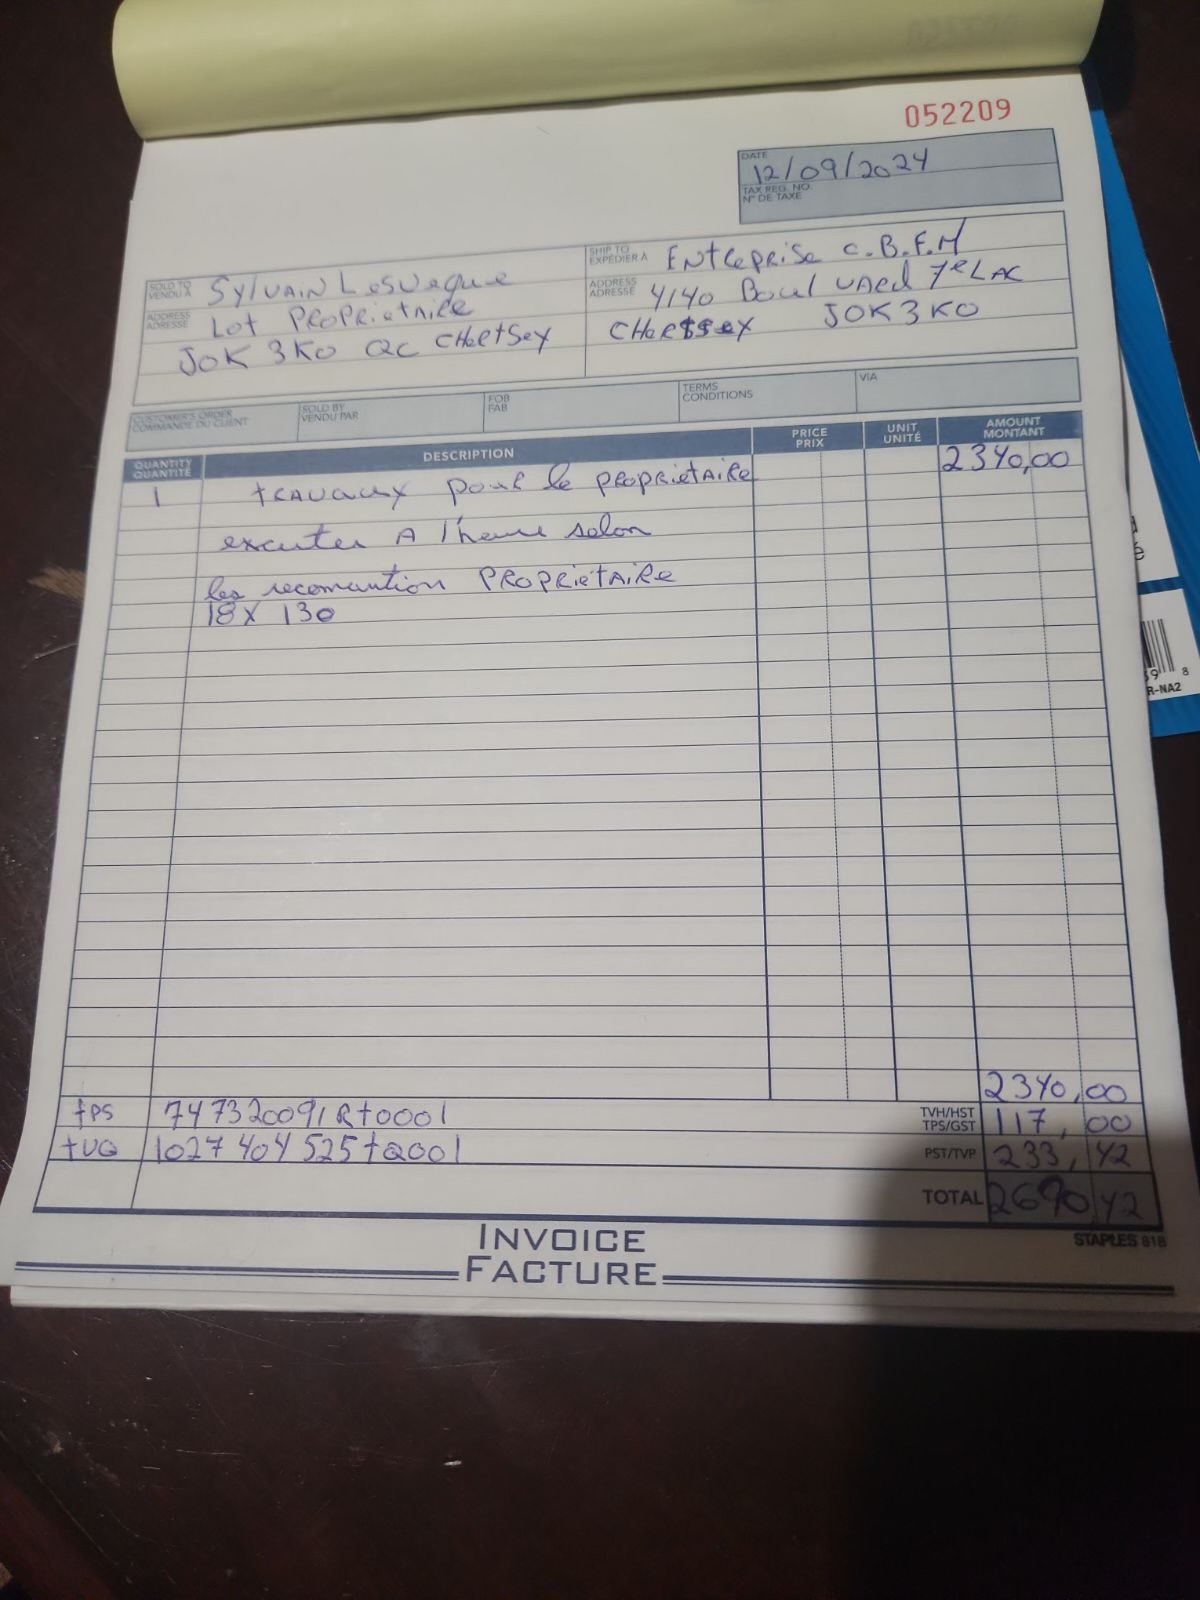 052209
DATE
12/09/2024
TAX REG. NO.
N° DE TAXE
SOLD TO
VENDU À
Sylvain Lesveque
ADDRESS
ADRESSE
Lot Proprietaire
J0K 3K0 QC CHertsey
SHIP TO
EXPÉDIER À
Entreprise C.B.F.M
ADDRESS
ADRESSE
4140 Boul vard 7e LAC
CHertssey J0K3K0
CUSTOMER'S ORDER
COMMANDE DU CLIENT
SOLD BY
VENDU PAR
FOB
FAB
TERMS
CONDITIONS
VIA
QUANTITY
QUANTITÉ
DESCRIPTION
PRICE
PRIX
UNIT
UNITÉ
AMOUNT
MONTANT
1 travaux pour le proprietaire 2340,00
excuter A l'heure selon
les recomantion Proprietaire
18 X 130
2340,00
tps 747320091Rt0001 TVH/HST
TPS/GST 117,00
tvq 1027404525tQ001 PST/TVP 233,42
TOTAL 2690,42
STAPLES 81B
INVOICE
FACTURE
9 8
R-NA2